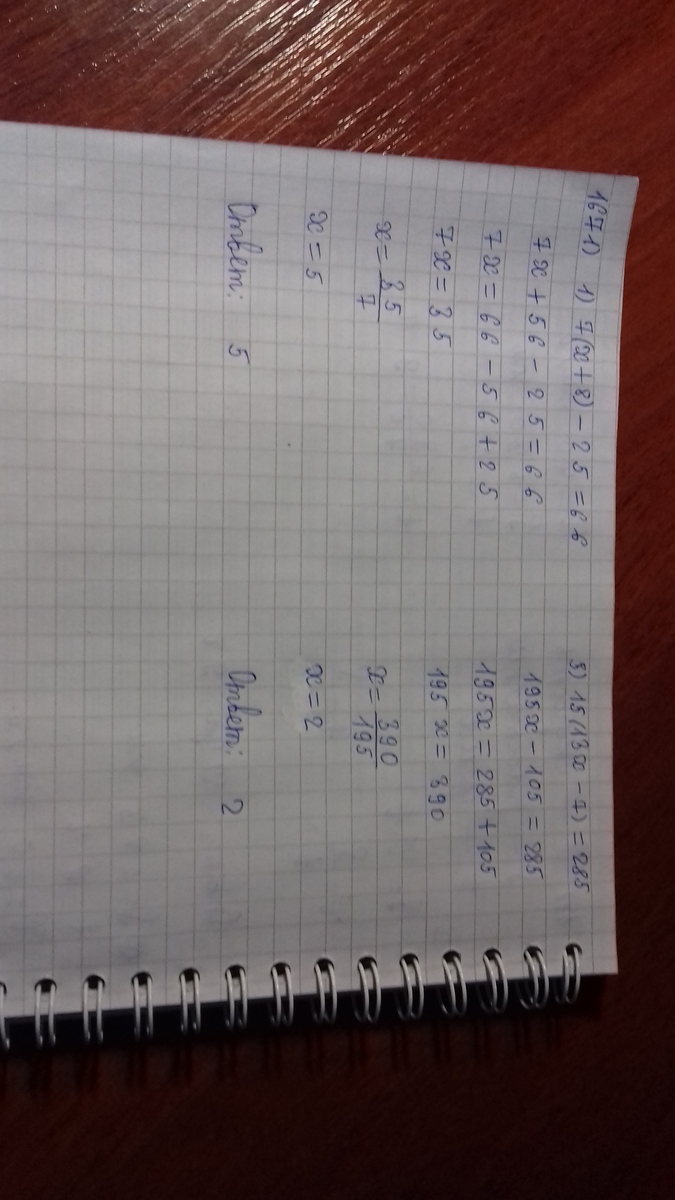 1671) 1) 7(x+8) - 25 = 66
7x + 56 - 25 = 66
7x = 66 - 56 + 25
7x = 35
x = 35/7
x = 5
Ответ: 5
3) 15(13x - 7) = 285
195x - 105 = 285
195x = 285 + 105
195x = 390
x = 390/195
x = 2
Ответ: 2